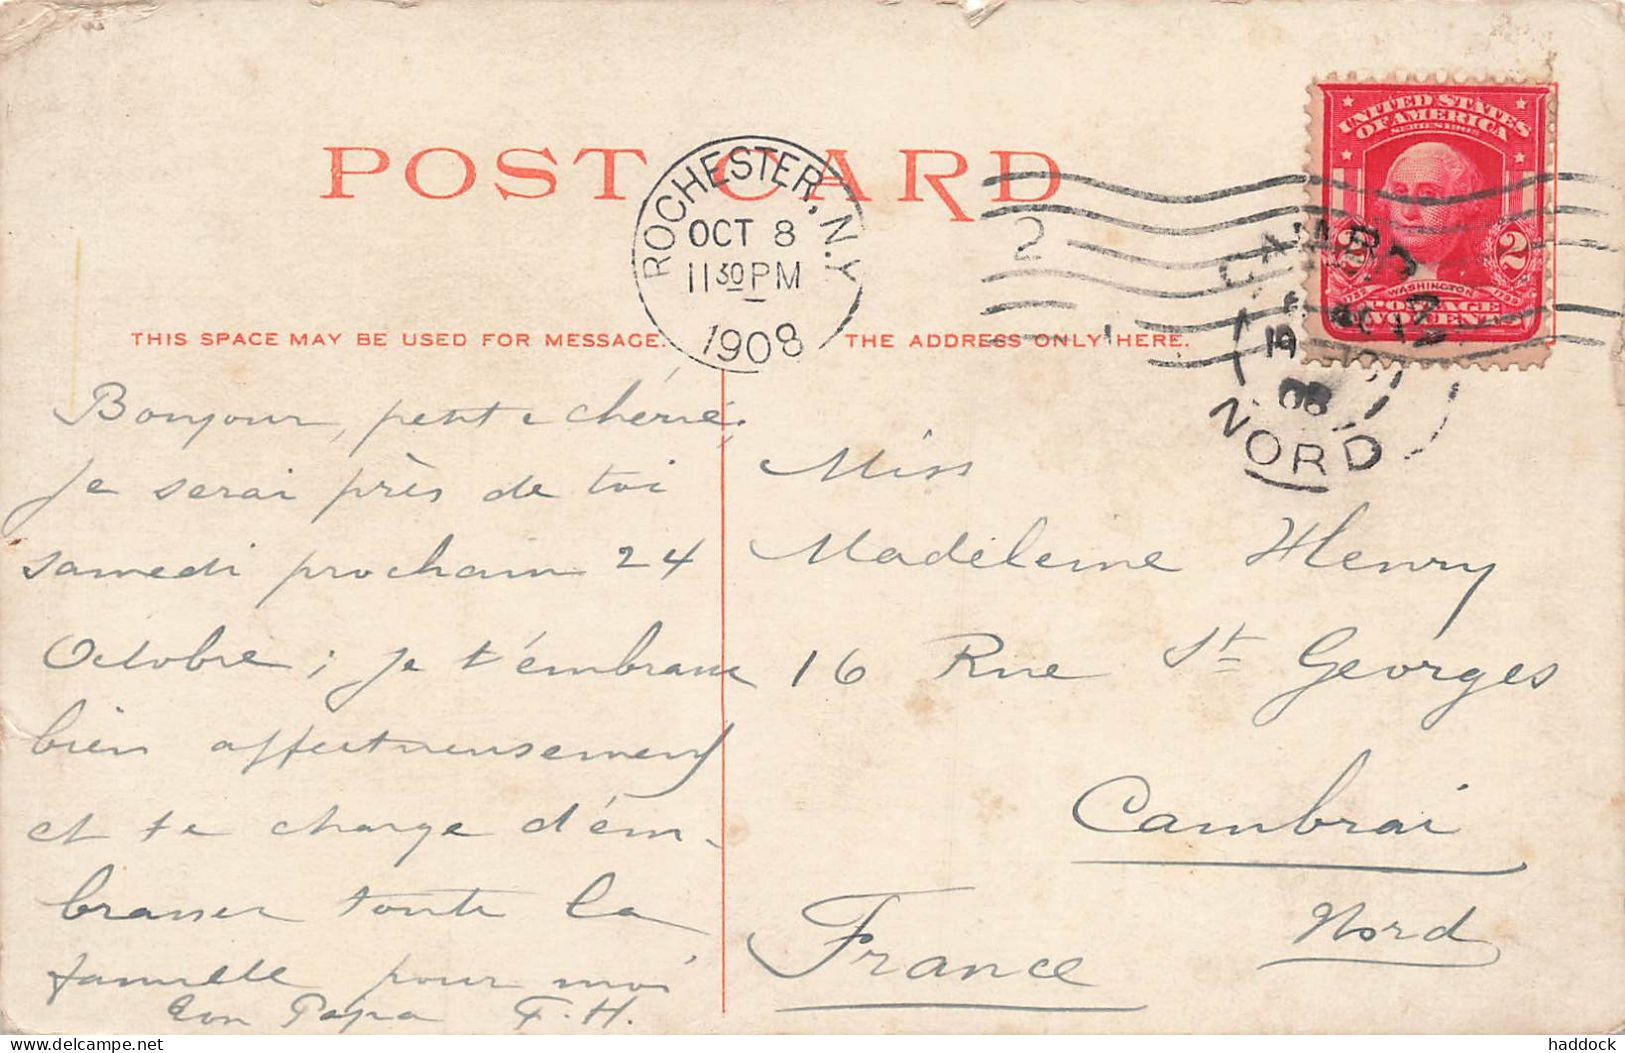 POST CARD
ROCHESTER, N.Y.
OCT 8
11 30 PM
1908
2
UNITED STATES
OF AMERICA
SERIES 1902
2 2
1732 WASHINGTON 1799
POSTAGE
TWO CENTS
CAMBRAI
19
08
NORD
THIS SPACE MAY BE USED FOR MESSAGE.
THE ADDRESS ONLY HERE.
Bonjour, petite chérie,
Je serai près de toi
samedi prochain 24
Octobre ; je t'embrasse
bien affectueusement
et te charge d'em-
brasser toute la
famille pour moi
Ton Papa F.H.
Miss
Madeleine Henry
16 Rue St Georges
Cambrai
Nord
France
haddock
delcampe.net